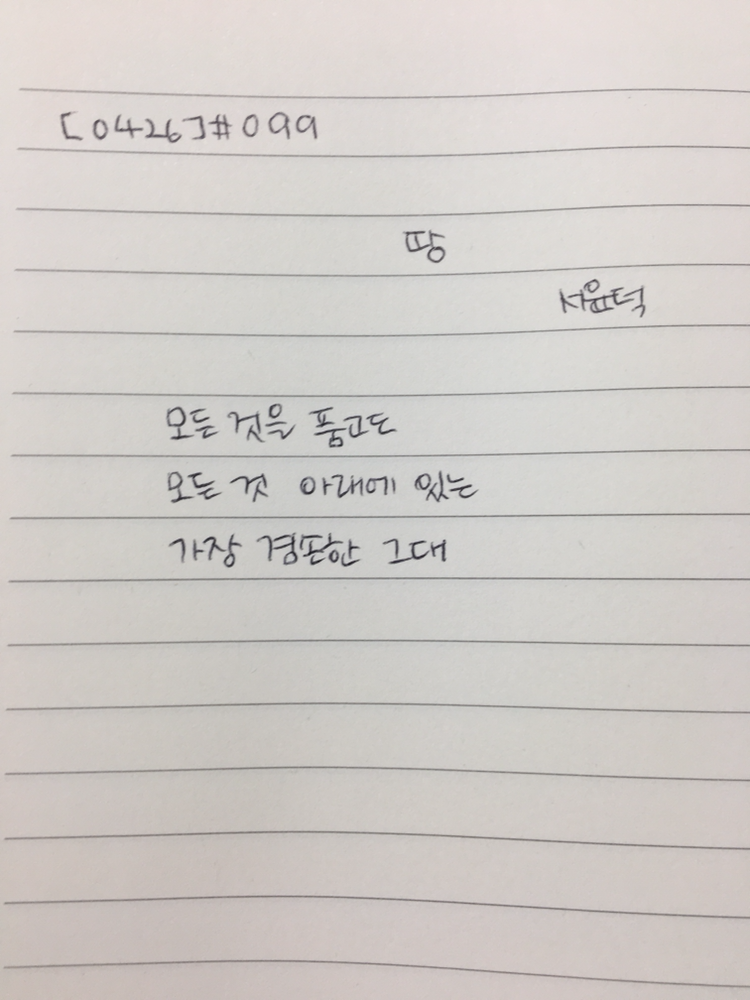 [0426]#099
땅
서윤덕
모든 것을 품고도
모든 것 아래에 있는
가장 겸손한 그대